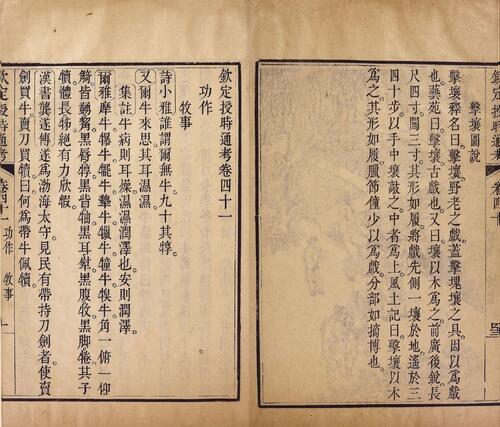 擊壤圖說
擊壤釋名曰擊壤野老之戲蓋擊塊壤之具因以爲戲
也藝苑曰擊壤古戲也又曰壤以木爲之前廣後銳長
尺四寸闊三寸其形如履將戲先側一壤於地遙於三
四十步以手中壤敲之中者爲上風土記曰擊壤以木
爲之其形如履臘節僮少以爲戲分部如擿博也
欽定授時通考
欽定授時通考卷四十一
功作
牧事
詩小雅誰謂爾無牛九十其犉
又爾牛來思其耳濕濕
集註牛病則耳燥濕濕潤澤也安則潤澤
爾雅摩牛犦牛犤牛犩牛犣牛犝牛犑牛角一俯一仰
觭皆踴觢黑脣犉黑眥牰黑耳犚黑腹牧黑脚犈其子
犢體長牬絕有力欣犌
漢書龔遂傳遂爲渤海太守見民有帶持刀劍者使賣
劍買牛賣刀買犢曰何爲帶牛佩犢
欽定授時通考
卷四十一
功作
牧事
一